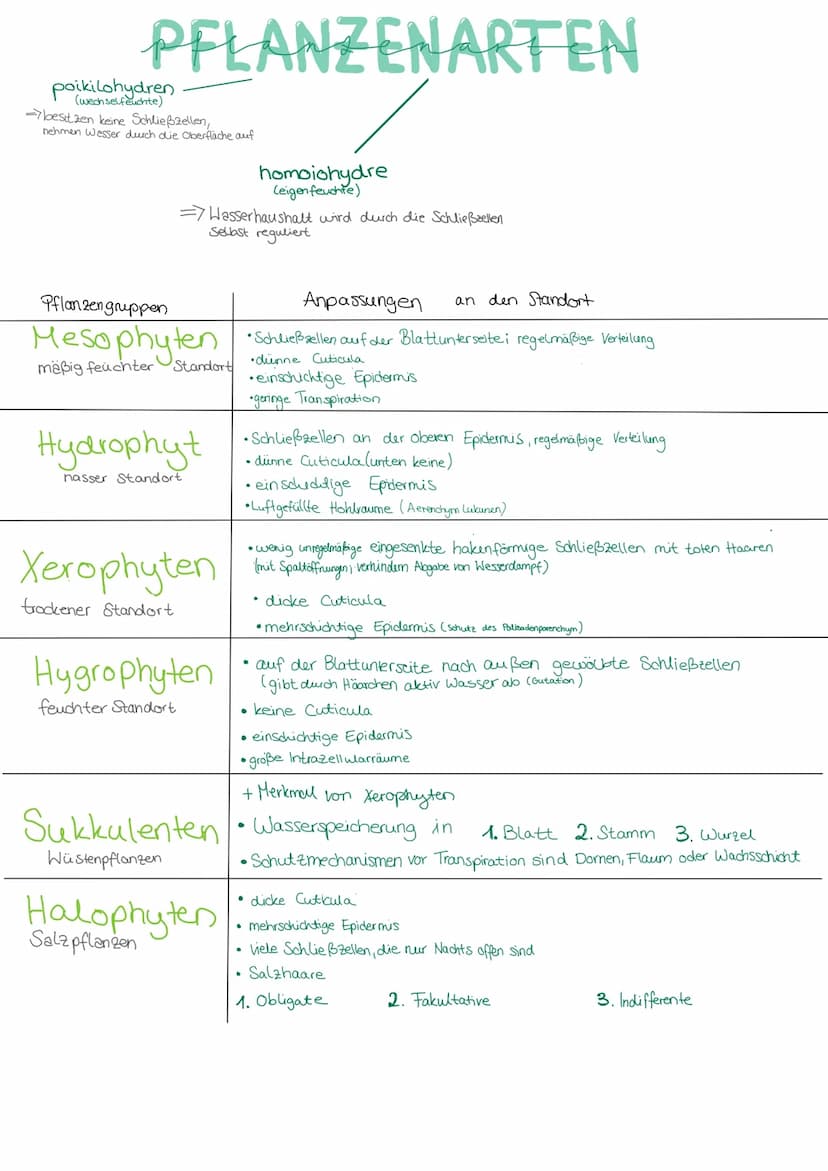 PFLANZENARTEN
pflanzenarten
poikilohydren
(wechselfeuchte)
=> besitzen keine Schließzellen,
nehmen Wesser durch die Oberfläche auf
homoiohydre
(eigenfeuchte)
=> Wasserhaushalt wird durch die Schließzellen
selbst reguliert
Pflanzengruppen
Anpassungen an den Standort
Mesophyten
mäßig feuchter Standort
• Schließzellen auf der Blattunterseite; regelmäßige Verteilung
• dünne Cuticula
• einschichtige Epidermis
• geringe Transpiration
Hydrophyt
nasser Standort
• Schließzellen an der oberen Epidermis, regelmäßige Verteilung
• dünne Cuticula (unten keine)
• einschichtige Epidermis
• Luftgefüllte Hohlräume (Aerenchym Lukunen)
Xerophyten
trockener Standort
• wenig unregelmäßige eingesenkte hakenförmige Schließzellen mit toten Haaren
(mit Spaltöffnungen; verhindern Abgabe von Wesserdampf)
• dicke Cuticula
• mehrschichtige Epidermis (Schutz des Pallisadenparenchym)
Hygrophyten
feuchter Standort
• auf der Blattunterseite nach außen gewölbte Schließzellen
(gibt durch Häarchen aktiv Wasser ab (Gutation)
• keine Cuticula
• einschichtige Epidermis
• große Intrazellularräume
Sukkulenten
Wüstenpflanzen
+ Merkmal von Xerophyten
• Wasserspeicherung in 1. Blatt 2. Stamm 3. Wurzel
• Schutzmechanismen vor Transpiration sind Dornen, Flaum oder Wachsschicht
Halophyten
Salzpflanzen
• dicke Cuticula
• mehrschichtige Epidermis
• viele Schließzellen, die nur Nachts offen sind
• Salzhaare
1. Obligate 2. Fakultative 3. Indifferente